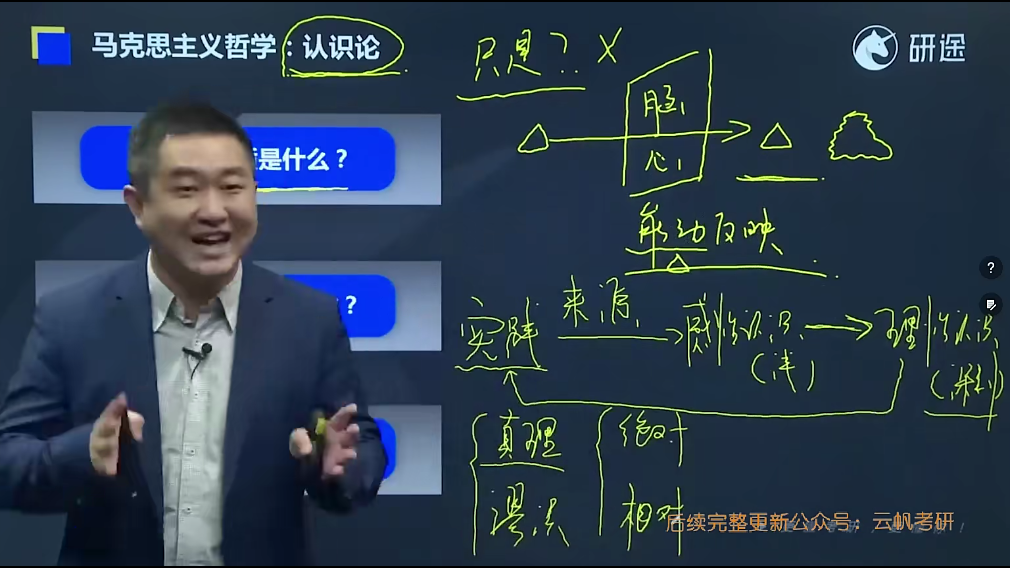 马克思主义哲学：认识论
研途
只是？ X
脑
心
是什么？
能动反映
？
实践
来源
感性认识
理性认识
（浅）
（深刻）
真理
绝对
谬误
相对
后续完整更新公众号：云帆考研
?